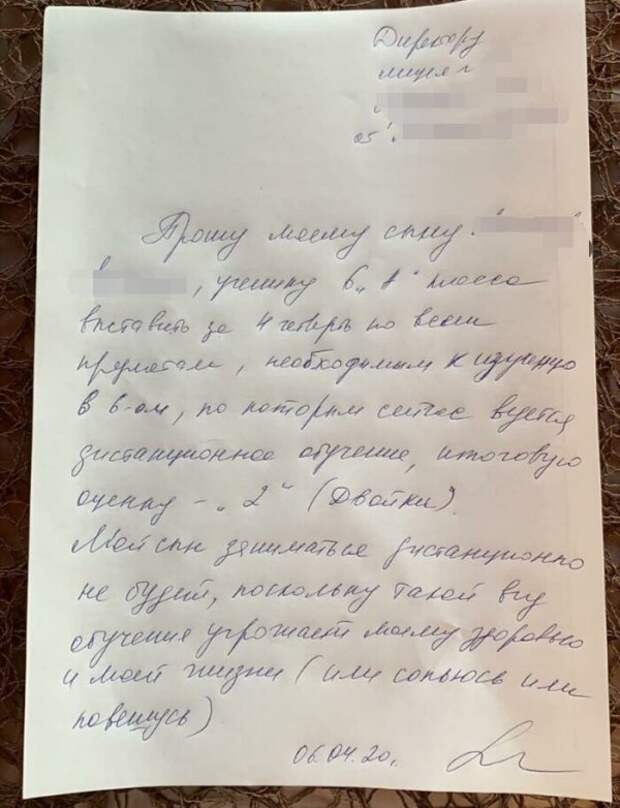 Директору
лицея
от
Прошу моему сыну
, ученику 6 „А" класса
выставить за 4 четверть по всем
предметам, необходимым к изучению
в 6-ом, по которым сейчас ведется
дистанционное обучение, итоговую
оценку – „2" (Двойки).
Мой сын заниматься дистанционно
не будет, поскольку такой вид
обучения угрожает моему здоровью
и моей жизни (или сопьюсь или
повешусь)
06.04.20г.